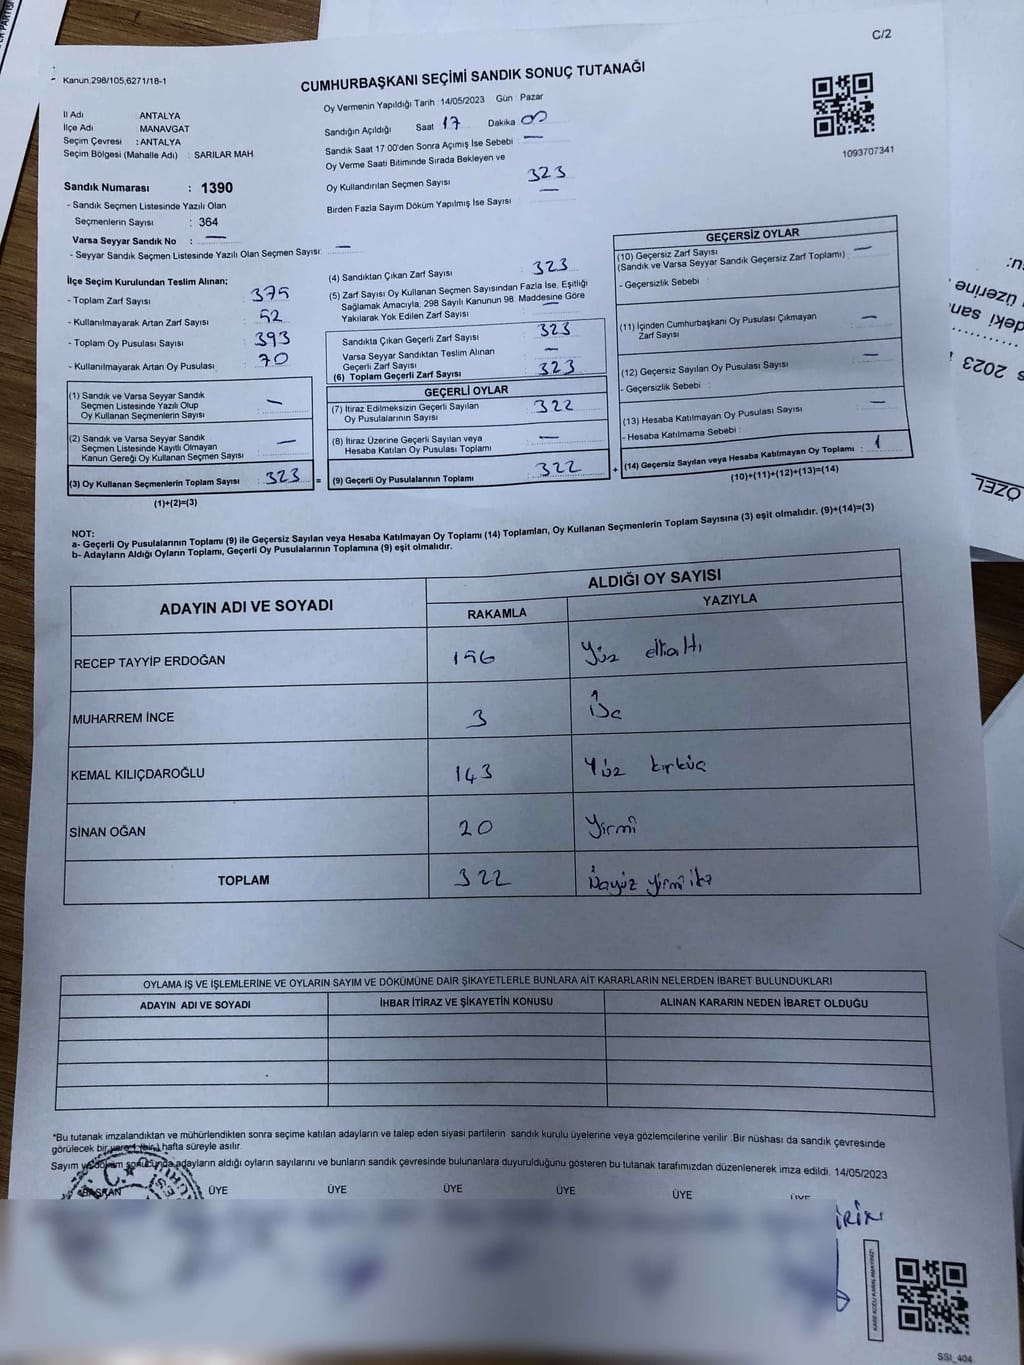 C/2
Kanun.298/105,6271/18-1
CUMHURBAŞKANI SEÇİMİ SANDIK SONUÇ TUTANAĞI
1093707341
İl Adı : ANTALYA
İlçe Adı : MANAVGAT
Seçim Çevresi : ANTALYA
Seçim Bölgesi (Mahalle Adı) : SARILAR MAH.
Sandık Numarası : 1390
- Sandık Seçmen Listesinde Yazılı Olan
Seçmenlerin Sayısı : 364
Varsa Seyyar Sandık No : —
- Seyyar Sandık Seçmen Listesinde Yazılı Olan Seçmen Sayısı: —
Oy Vermenin Yapıldığı Tarih :14/05/2023 Gün : Pazar
Sandığın Açıldığı Saat 17 Dakika 00
Sandık Saat 17:00'den Sonra Açımış İse Sebebi : —
Oy Verme Saati Bitiminde Sırada Bekleyen ve
Oy Kullandırılan Seçmen Sayısı 323
Birden Fazla Sayım Döküm Yapılmış İse Sayısı —
İlçe Seçim Kurulundan Teslim Alınan;
- Toplam Zarf Sayısı : 375
- Kullanılmayarak Artan Zarf Sayısı : 52
- Toplam Oy Pusulası Sayısı : 393
- Kullanılmayarak Artan Oy Pusulası : 70
(1) Sandık ve Varsa Seyyar Sandık
Seçmen Listesinde Yazılı Olup
Oy Kullanan Seçmenlerin Sayısı : —
(2) Sandık ve Varsa Seyyar Sandık
Seçmen Listesinde Kayıtlı Olmayan
Kanun Gereği Oy Kullanan Seçmen Sayısı : —
(3) Oy Kullanan Seçmenlerin Toplam Sayısı : 323 =
(1)+(2)=(3)
(4) Sandıktan Çıkan Zarf Sayısı : 323
(5) Zarf Sayısı Oy Kullanan Seçmen Sayısından Fazla İse, Eşitliği
Sağlamak Amacıyla, 298 Sayılı Kanunun 98. Maddesine Göre
Yakılarak Yok Edilen Zarf Sayısı : —
Sandıkta Çıkan Geçerli Zarf Sayısı : 323
Varsa Seyyar Sandıktan Teslim Alınan
Geçerli Zarf Sayısı : —
(6) Toplam Geçerli Zarf Sayısı : 323
GEÇERLİ OYLAR
(7) İtiraz Edilmeksizin Geçerli Sayılan
Oy Pusulalarının Sayısı : 322
(8) İtiraz Üzerine Geçerli Sayılan veya
Hesaba Katılan Oy Pusulası Toplamı : —
(9) Geçerli Oy Pusulalarının Toplamı : 322 +
GEÇERSİZ OYLAR
(10) Geçersiz Zarf Sayısı
(Sandık ve Varsa Seyyar Sandık Geçersiz Zarf Toplamı) : —
- Geçersizlik Sebebi :
(11) İçinden Cumhurbaşkanı Oy Pusulası Çıkmayan
Zarf Sayısı : —
(12) Geçersiz Sayılan Oy Pusulası Sayısı : —
- Geçersizlik Sebebi :
(13) Hesaba Katılmayan Oy Pusulası Sayısı : —
- Hesaba Katılmama Sebebi :
(14) Geçersiz Sayılan veya Hesaba Katılmayan Oy Toplamı : 1
(10)+(11)+(12)+(13)=(14)
NOT:
a- Geçerli Oy Pusulalarının Toplamı (9) ile Geçersiz Sayılan veya Hesaba Katılmayan Oy Toplamı (14) Toplamları, Oy Kullanan Seçmenlerin Toplam Sayısına (3) eşit olmalıdır. (9)+(14)=(3)
b- Adayların Aldığı Oyların Toplamı, Geçerli Oy Pusulalarının Toplamına (9) eşit olmalıdır.
ADAYIN ADI VE SOYADI
ALDIĞI OY SAYISI
RAKAMLA YAZIYLA
RECEP TAYYİP ERDOĞAN 156 Yüz elli altı
MUHARREM İNCE 3 Üç
KEMAL KILIÇDAROĞLU 143 Yüz kırküç
SİNAN OĞAN 20 Yirmi
TOPLAM 322 Üçyüz yirmi iki
OYLAMA İŞ VE İŞLEMLERİNE VE OYLARIN SAYIM VE DÖKÜMÜNE DAİR ŞİKAYETLERLE BUNLARA AİT KARARLARIN NELERDEN İBARET BULUNDUKLARI
ADAYIN ADI VE SOYADI İHBAR İTİRAZ VE ŞİKAYETİN KONUSU ALINAN KARARIN NEDEN İBARET OLDUĞU
*Bu tutanak imzalandıktan ve mühürlendikten sonra seçime katılan adayların ve talep eden siyasi partilerin sandık kurulu üyelerine veya gözlemcilerine verilir. Bir nüshası da sandık çevresinde
görülecek bir yere 1 (bir) hafta süreyle asılır.
Sayım ve döküm sonucunda adayların aldığı oyların sayılarını ve bunların sandık çevresinde bulunanlara duyurulduğunu gösteren bu tutanak tarafımızdan düzenlenerek imza edildi. 14/05/2023
BAŞKAN ÜYE ÜYE ÜYE ÜYE ÜYE ÜYE
SSI_404
üzerine
deki
2023
ÖZEL